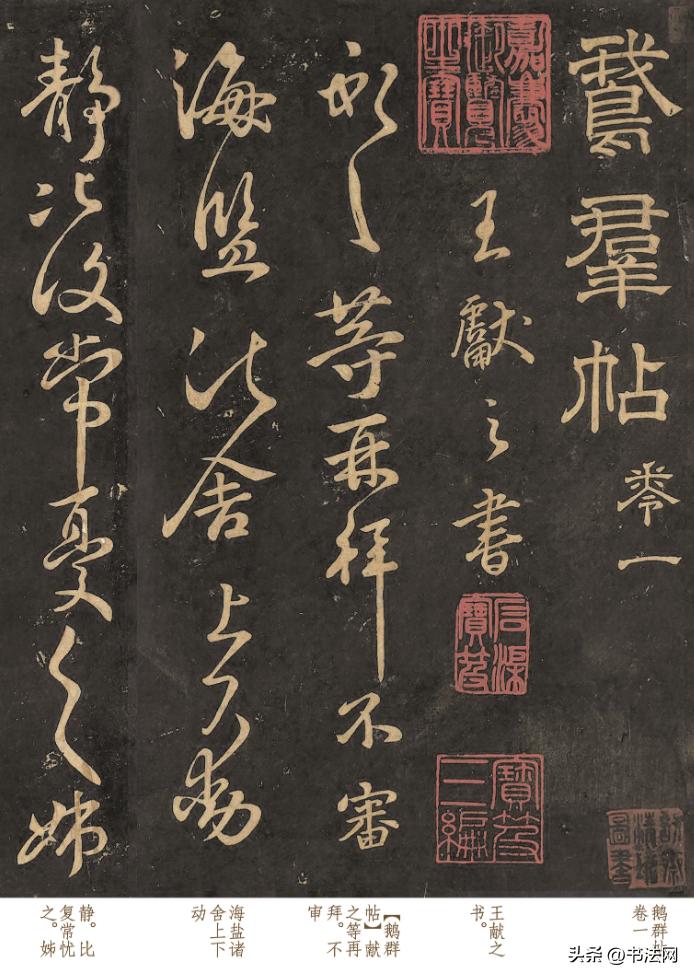 鵞羣帖 卷一
王獻之書
獻之等再拜不審
海盐诸舍上下動
静比復常憂之姊
嘉慶御覽之寶
石渠寶笈
寶笈三編
鹅群帖
卷一
王献之
书。
【鹅群
帖】献
之等再
拜。不
审
海盐诸
舍上下
动
静。比
复常忧
之。姊
头条 @书法网